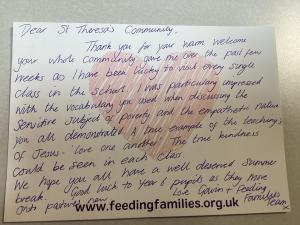 Dear St Theresa's Community,
Thank you for your warm welcome
your whole community gave me over the past few
weeks as I have been lucky to visit every single
class in the school. I was particulary impressed
with the vocabulary you used when discussing the
sensitive subject of poverty and the empathetic nature
you all demonstrated. A true example of the teachings
of Jesus - love one another. The true kindness
could be seen in each class.
We hope you all have a well deserved summer
break. Good luck to Year 6 pupils as they move
onto pastures new. Love Gavin + Feeding
Families
Team
www.feedingfamilies.org.uk